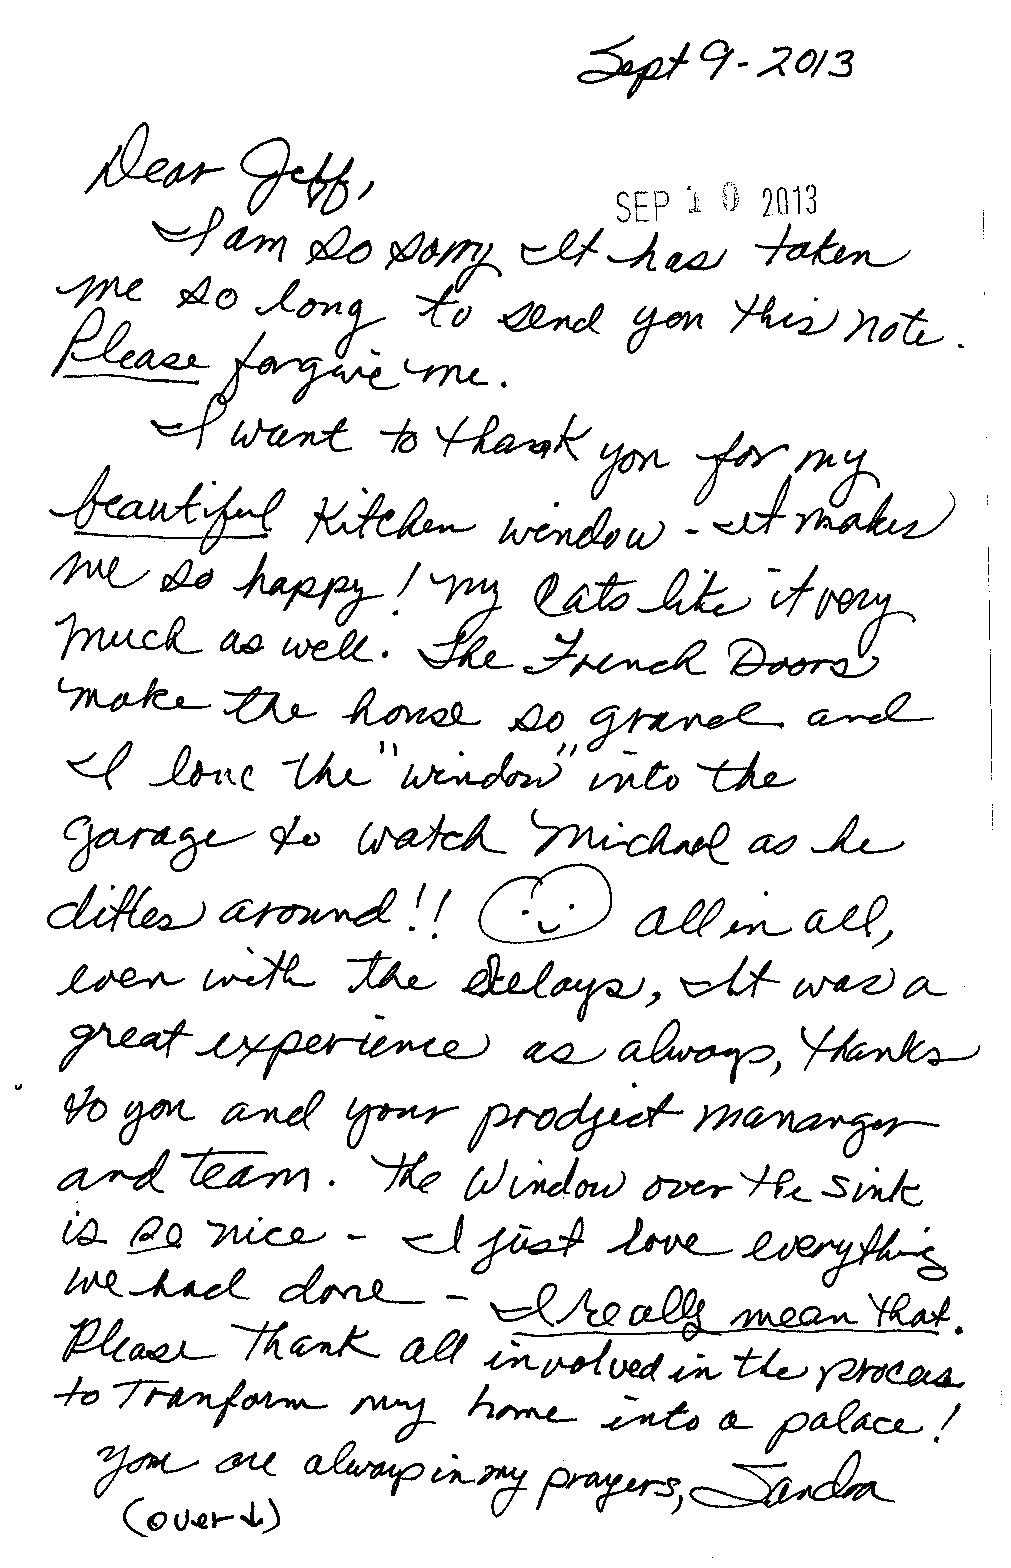 Sept 9-2013
Dear Jeff,
SEP 10 2013
I am so sorry It has taken
me so long to send you this note.
Please forgive me.
I want to thank you for my
beautiful Kitchen window - It makes
me so happy! My Cats like it very
much as well. The French Doors
make the house so grand and
I love the "window" into the
garage to watch Michael as he
dittles around!! all in all,
even with the delays, It was a
great experience as always, thanks
to you and your prodject mananger
and team. The Window over the sink
is so nice - I just love everything
we had done - I really mean that.
Please thank all involved in the process
to Tranform my home into a palace!
You are always in my prayers, Sandra
(over ↓)